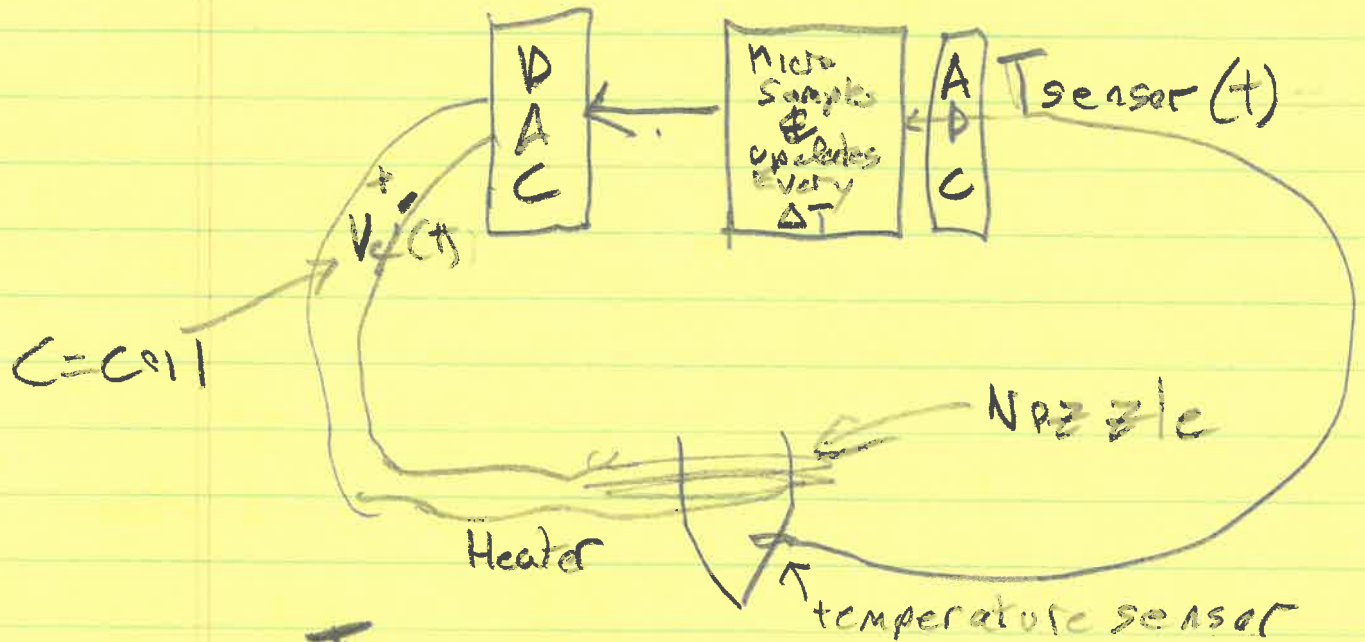 D
A
C
Micro
Samples
&
updates
every
ΔT
A
D
C
Tsensor(t)
+
-
Vc(t)
C=coil
Nozzle
Heater
temperature sensor